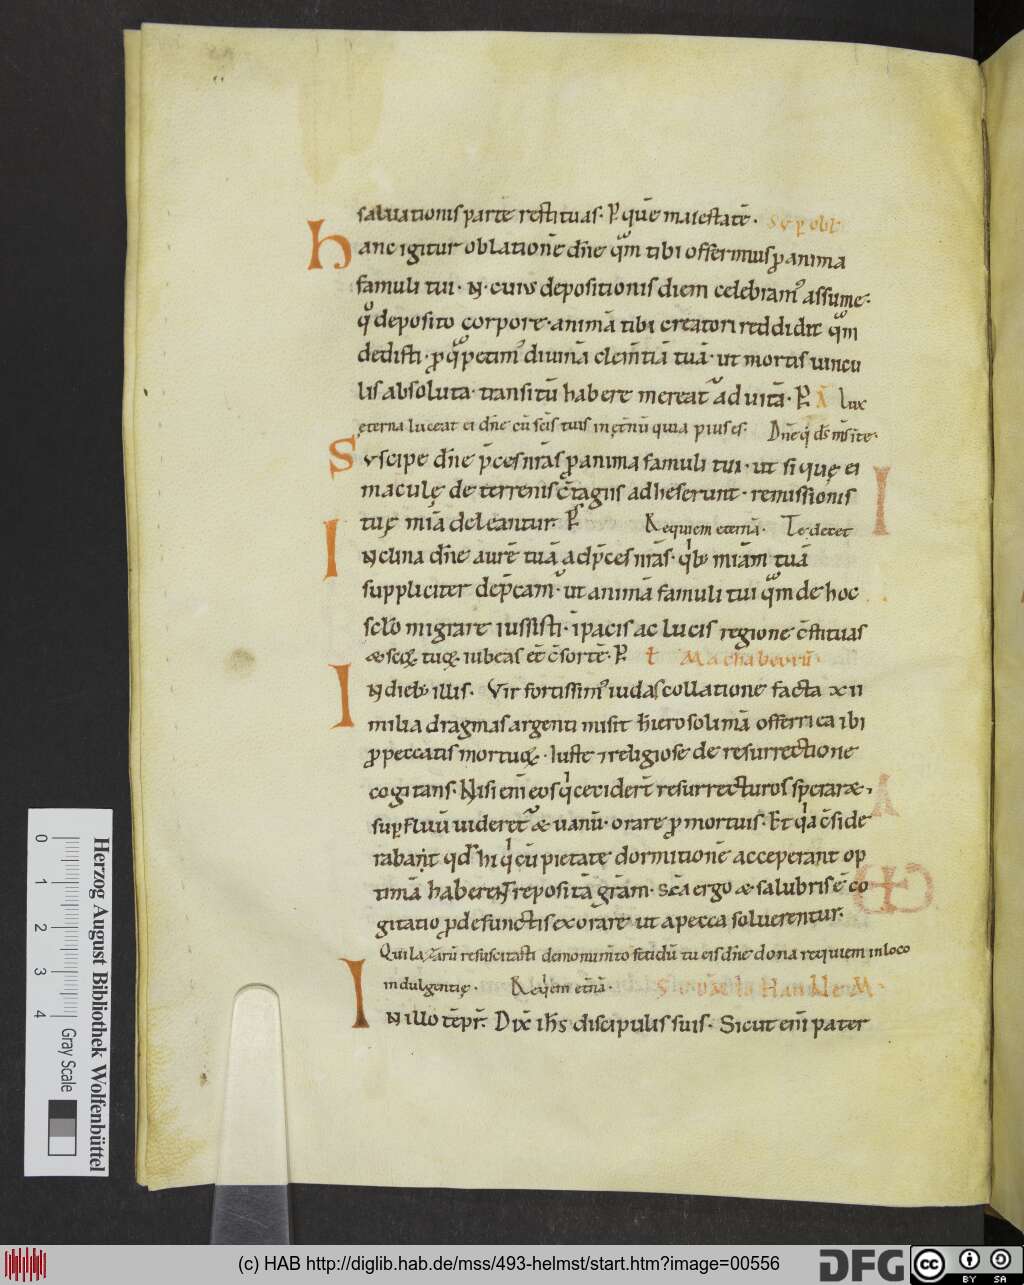 saluationis partē restituas. P quē maiestatē. Sup̄ obl̄
hanc igitur oblationē dn̄e qͣm tibi offerimus ꝓ anima
famuli tui. N. cuius depositionis diem celebram᷒ assume.
qͦ deposito corpore. animā tibi creatori reddidit qͣm
dedisti. ꝓ qͣ petim᷒ diuinā clem̄tiā tuā. ut mortis uincu
lis absoluta. transitū habere mereat᷑ ad uitā. P. Ā Lux
ęterna luceat ei dn̄e cū sc̄is tuis in ęt̄nū quia pius es. Dn̄e q̄ ds̄ mīsr̄te.
Suscipe dn̄e p̄ces nr̄as ꝓ anima famuli tui. ut si quę ei
maculę de terrenis c̄tagiis adheserunt. remissionis
tuę miā deleantur. P Requiem eternā. Te decet
Inclina dn̄e aurē tuā ad p̄ces nr̄as. qͥb᷒ miām tuā
suppliciter dep̄cam᷒. ut animā famuli tui qͣm de hoc
sclo migrare iussisti. ī pacis ac lucis regione c̄stituas
& scōꝝ tuoꝝ. iubeas eē c̄sortē. P. Machabeorū.
In dieb᷒ illis. Vir fortissim᷒ iudas collatione facta xii
milia dragmas argenti misit hierosolimā offerri ea ibi
ꝓ peccatis mortuoꝝ. Iuste ⁊ religiose de resurrectione
cogitans. Nisi enī eos qͥ cecidert̄ resurrecturos sperar&.
sup̄fluū uideret᷑ & uanū. orare ꝓ mortuis. Et qͥa c̄side
rabant qd̄ hi qͥ cū pietate dormitionē acceperant op
timā haberent repositā grām. Scā ergo & salubris ē co
gitatio ꝓ defunctis exorare ut a pecca soluerentur.
Qui lazarū resuscitasti de monumēto fetidū tu eis dn̄e dona requiem in loco
indulgentię. Reqͥem et̄nā.
In illo tēpr̄. Dix̄ ih̄s discipulis suis. Sicut enī pater
0 1 2 3 4
Gray Scale
Herzog August Bibliothek Wolfenbüttel
(c) HAB http://diglib.hab.de/mss/493-helmst/start.htm?image=00556
DFG
cc BY SA